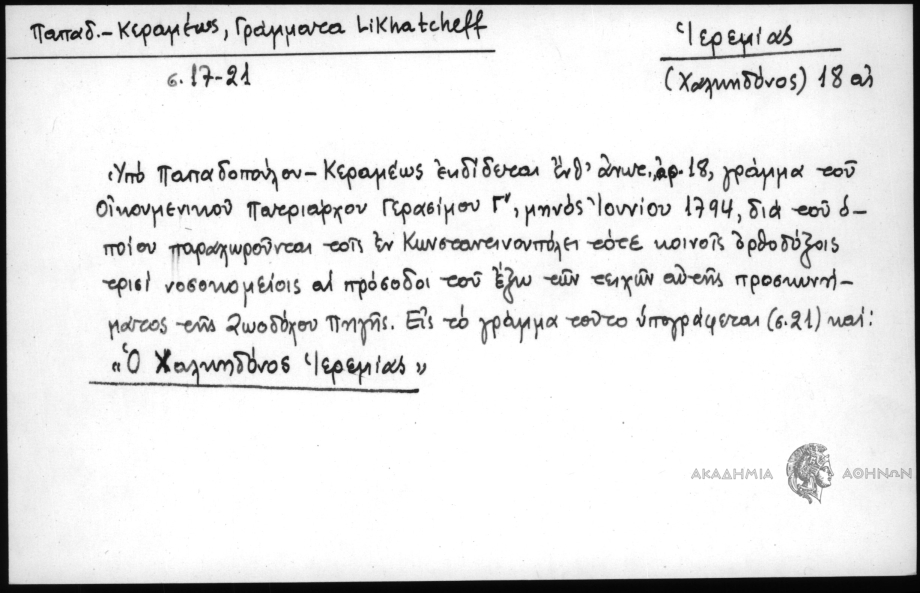 Παπαδ.-Κεραμέως, Γράμματα Likhatcheff
Ἱερεμίας
σ. 17-21
(Χαλκηδόνος) 18 αἰ
Ὑπό Παπαδοπούλου-Κεραμέως ἐκδίδεται ἔνθ' ἄνωτ. ἀρ. 18, γράμμα τοῦ
Οἰκουμενικοῦ Πατριάρχου Γερασίμου Γ', μηνός Ἰουνίου 1794, διά τοῦ ὁ-
ποίου παραχωροῦνται τοῖς ἐν Κωνσταντινουπόλει τότε κοινοῖς ὀρθοδόξοις
τρισί νοσοκομείοις αἱ πρόσοδοι τοῦ ἔξω τῶν τειχῶν αὐτῆς προσκυνή-
ματος τῆς Ζωοδόχου Πηγῆς. Εἰς τό γράμμα τοῦτο ὑπογράφεται (σ. 21) καί:
«Ὁ Χαλκηδόνος Ἱερεμίας»
ΑΚΑΔΗΜΙΑ ΑΘΗΝΩΝ